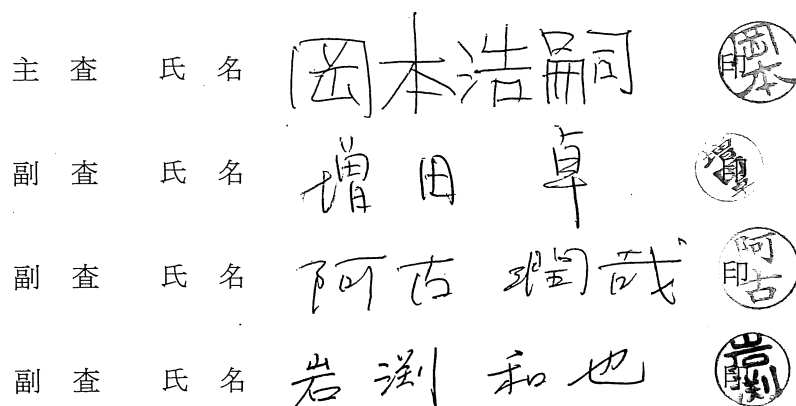 主査 氏名 岡本浩嗣 印 岡本
副査 氏名 増田 卓 印
副査 氏名 阿古潤哉 印 阿古
副査 氏名 岩渕 和也 印 岩渕